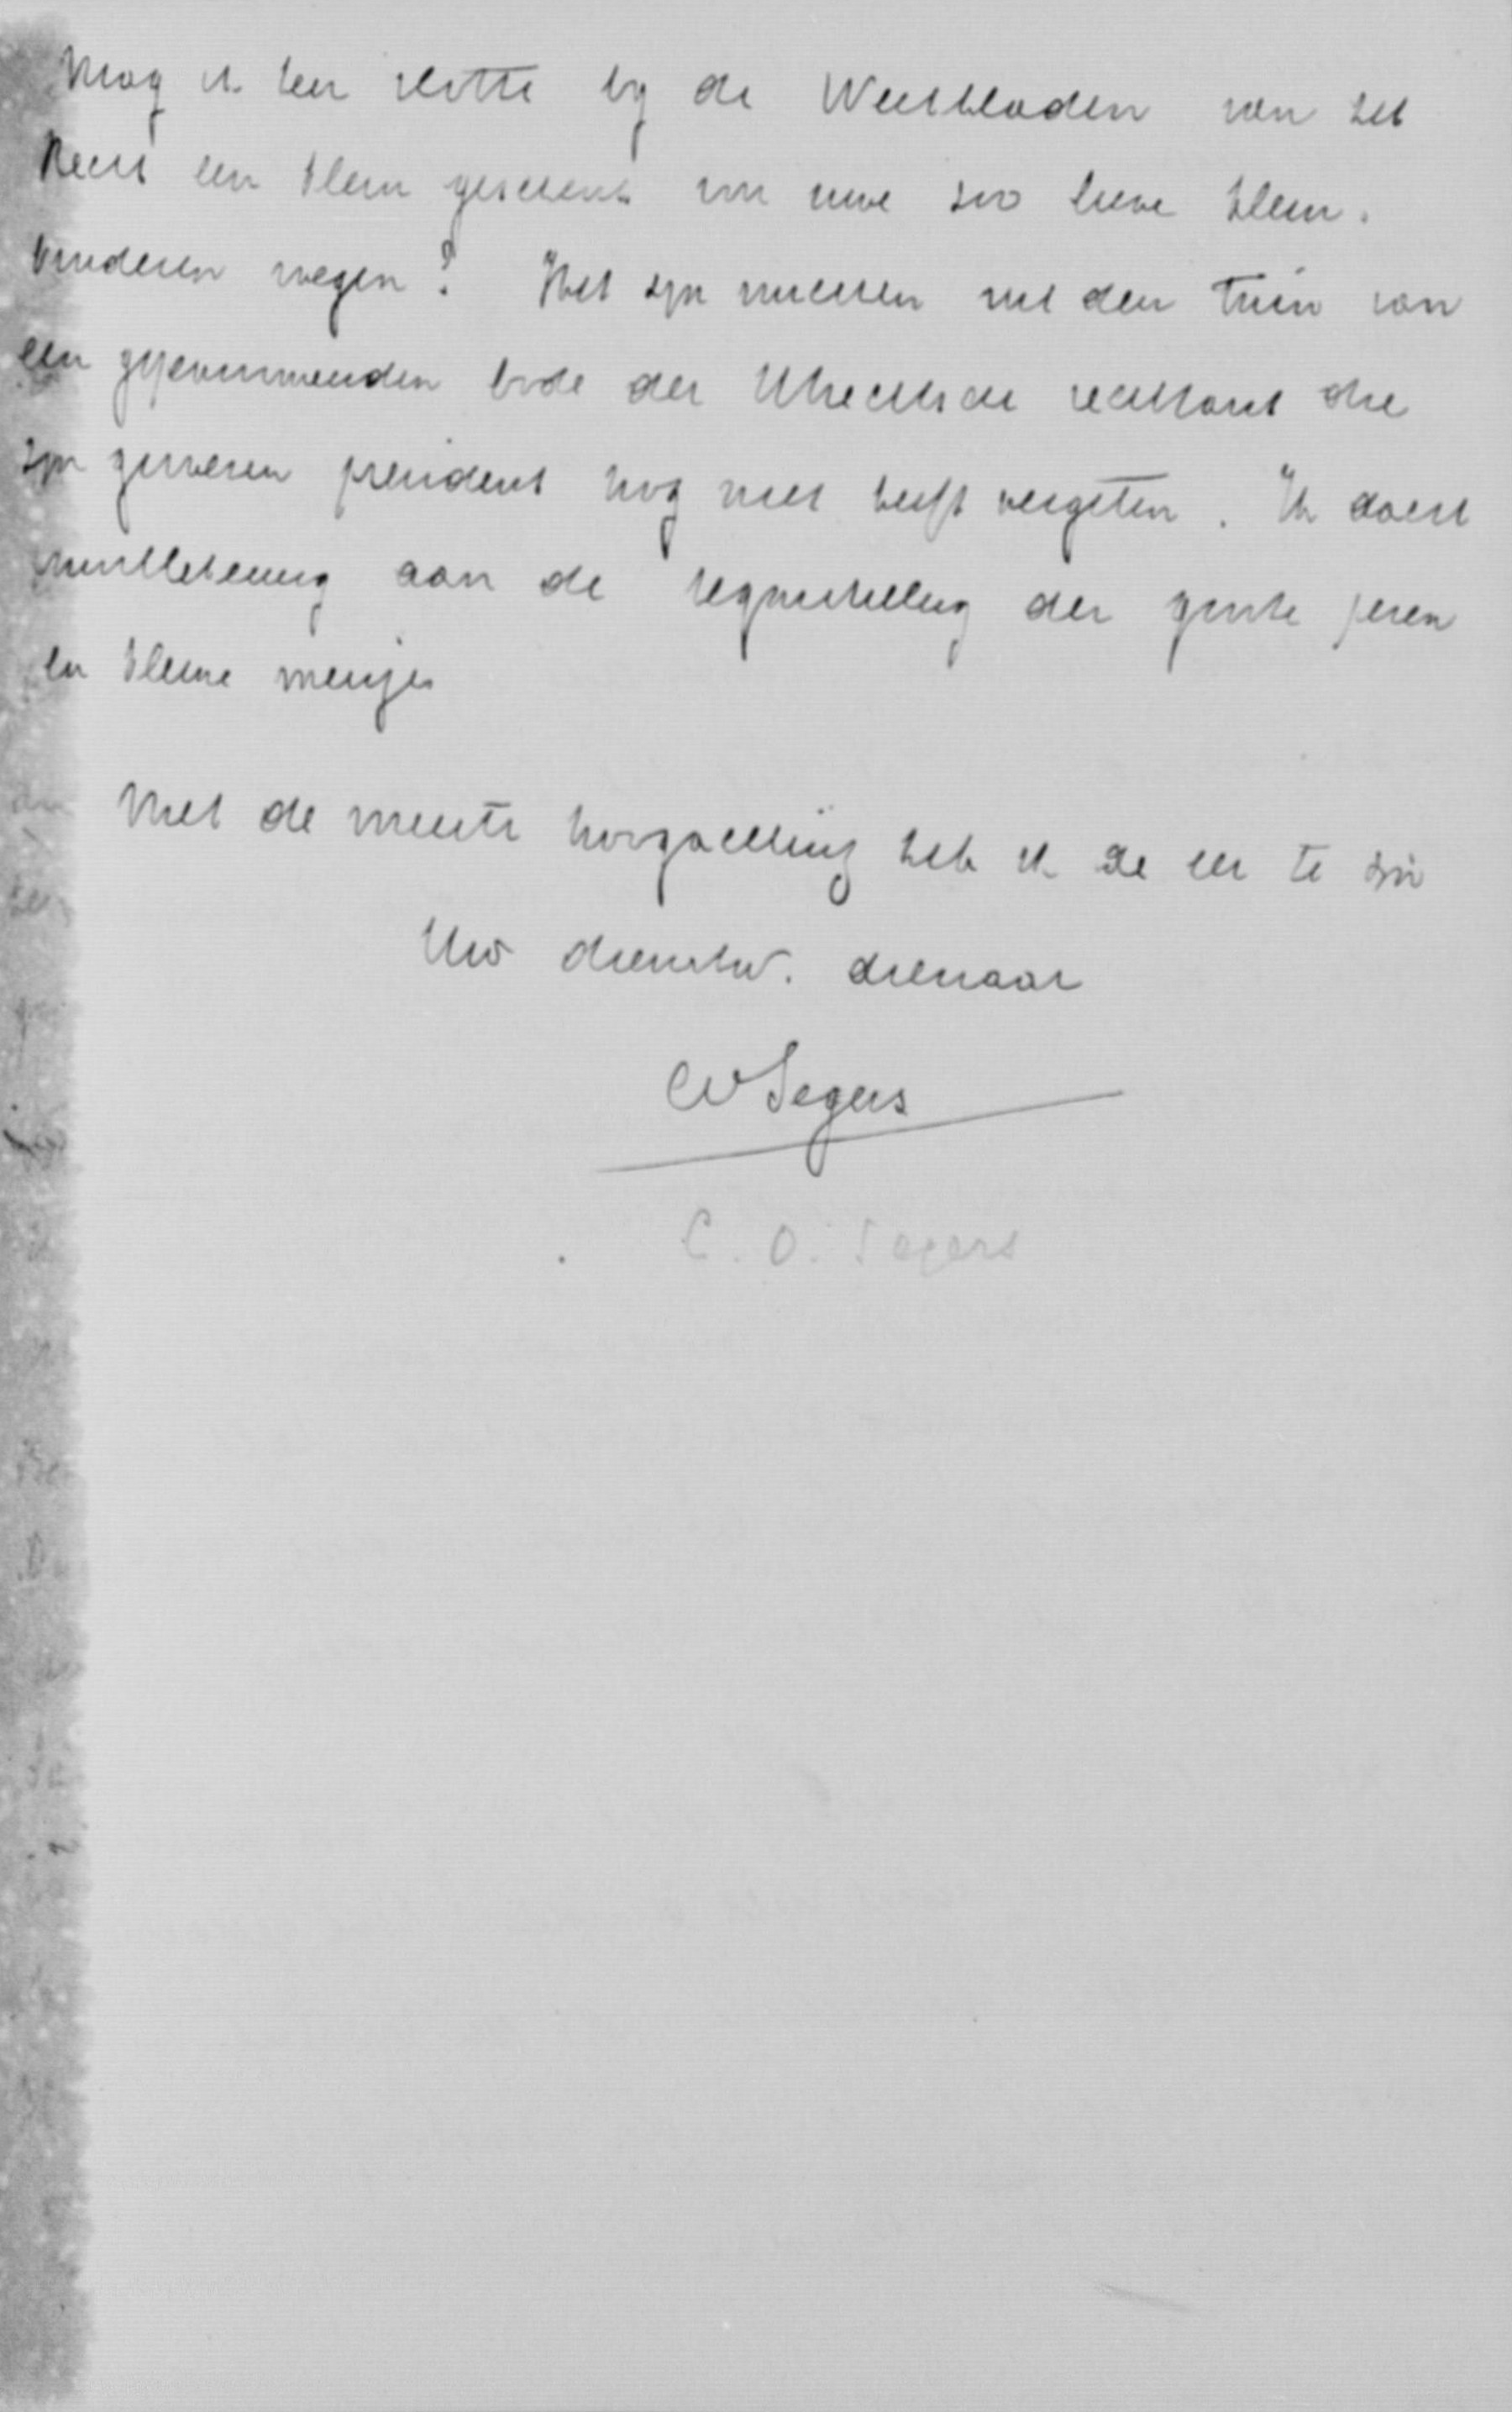 Mag ik ten slotte bij de Weekbladen van het
Recht een klein geschenk voor uwe zoo lieve klein-
kinderen voegen? Het zijn vruchten uit den tuin van
een gepensionneerden bode der Utrechtsche rechtbank die
zijn gewezen president nog niet heeft vergeten. Ik dacht
onwillekeurig aan de tegenstelling der groote peren
en kleine meisjes
Met de meeste hoogachting heb ik de eer te zijn
Uw dienstw. dienaar
CO Segers
C. O. Segers